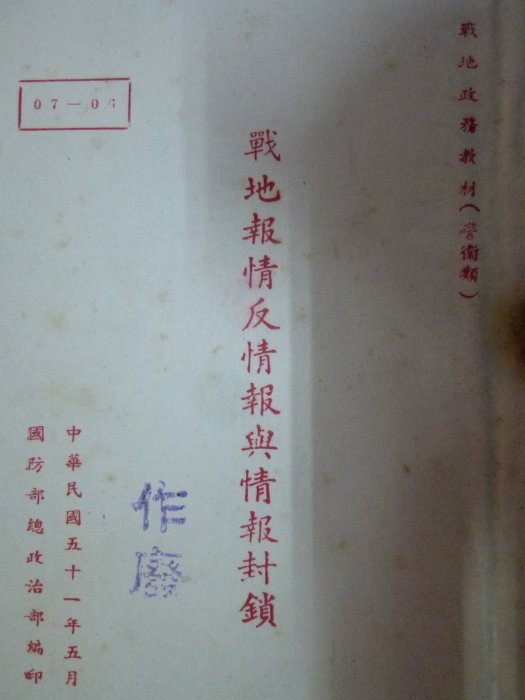 戰地政務教材(警衛類)
戰地報情反情報與情報封鎖
07—06
作廢
中華民國五十一年五月
國防部總政治部編印